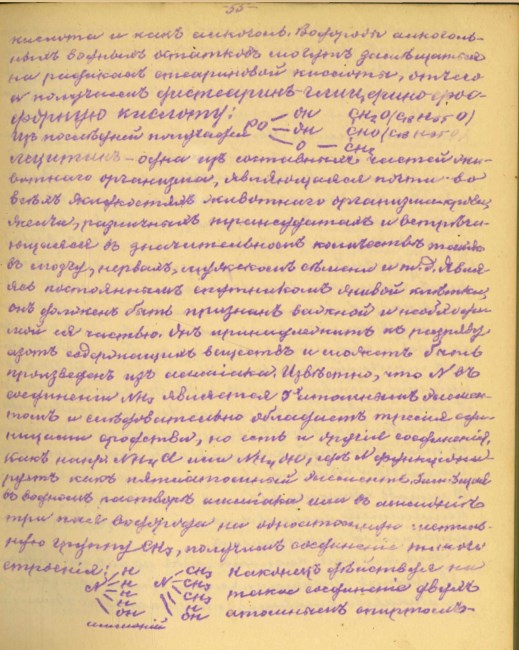 -33-
кислота и какъ алкоголь. Водороды алкоголь-
ныхъ водныхъ остатковъ могутъ замѣщаться
на радикалъ стеариновой кислоты, отчего
и получаемъ дистеаринъ-глицерино-фос-
форную кислоту: OH CH₂O(C₁₈H₃₅O)
Изъ послѣдней получается PO OH CHO(C₁₈H₃₅O)
O — CH₂
лецитинъ — одна изъ составныхъ частей жи-
вотнаго организма, являющаяся почти во
всѣхъ жидкостяхъ животнаго организма: крови,
желчи, различныхъ транссудатахъ и встрѣча-
ющаяся въ значительномъ количествѣ также
въ мозгу, нервахъ, мужскомъ сѣмени и т.д. Явля-
ясь постояннымъ спутникомъ живой клѣтки,
онъ долженъ быть признанъ важной и необходи-
мой ея частью. Онъ принадлежитъ къ разряду
азотъ содержащихъ веществъ и можетъ быть
произведенъ изъ амміака. Извѣстно, что N въ
соединеніи NH₃ является 3хатомнымъ элемен-
томъ и слѣдовательно обладаетъ тремя еди-
ницами сродства, но есть и другія соединенія,
какъ напр. NH₄Cl или NH₄OH, гдѣ N функціони-
руетъ какъ пятиатомный элементъ.
въ водномъ растворѣ амміака или въ аммоніѣ
три пая водорода на одноатомную метиль-
ную группу CH₃, получимъ соединеніе такого
строенія: N H H H H OH N CH₃ CH₃ CH₃ H OH наконецъ дѣйствуя на
такое соединеніе двухъ
атомнымъ спиртомъ-
аммоній